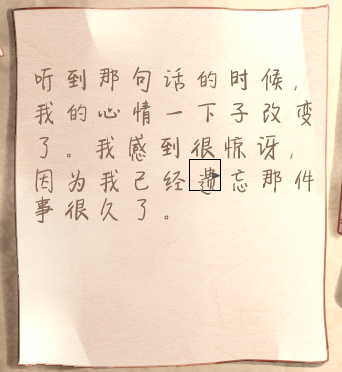 听到那句话的时候，
我的心情一下子改变
了。我感到很惊讶，
因为我已经遗忘那件
事很久了。